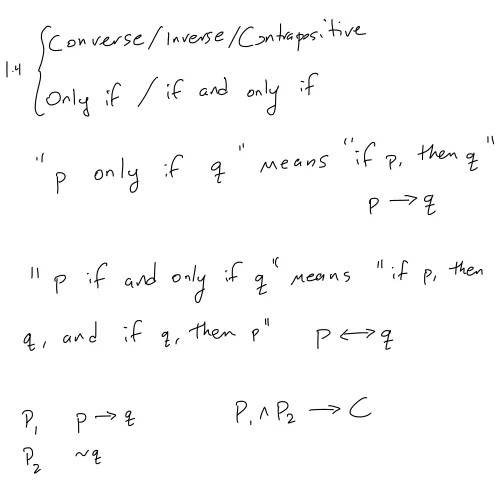 1.4 Converse/Inverse/Contrapositive
Only if / if and only if
"p only if q" means "if p, then q"
p → q
"p if and only if q" means "if p, then
q, and if q, then p" p ↔ q
P₁ p → q P₁ ∧ P₂ → C
P₂ ~q